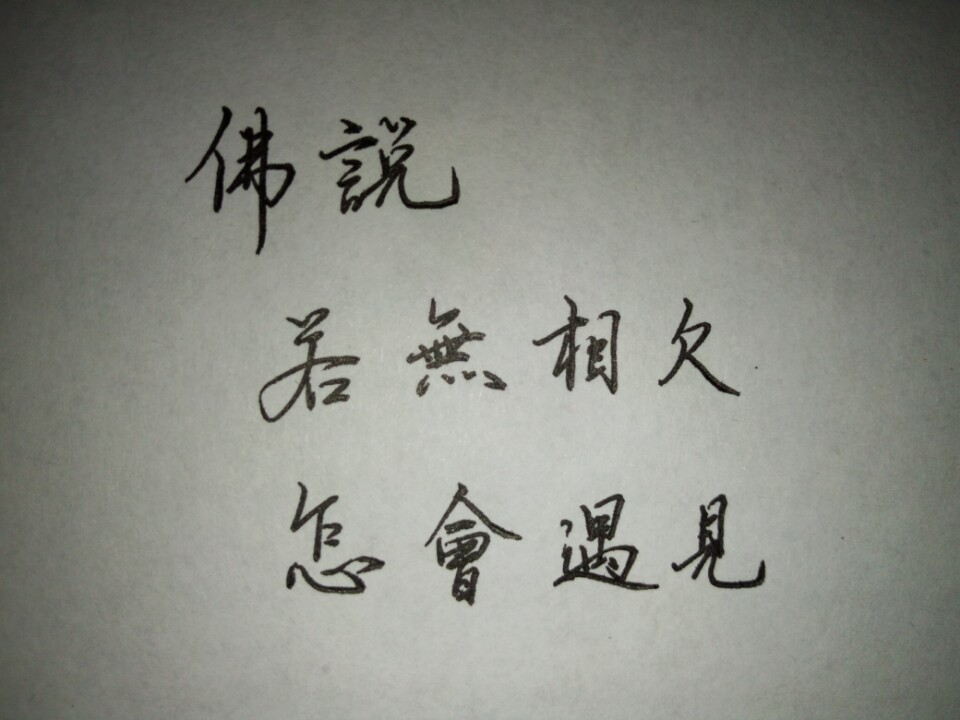 佛說
若無相欠
怎會遇見